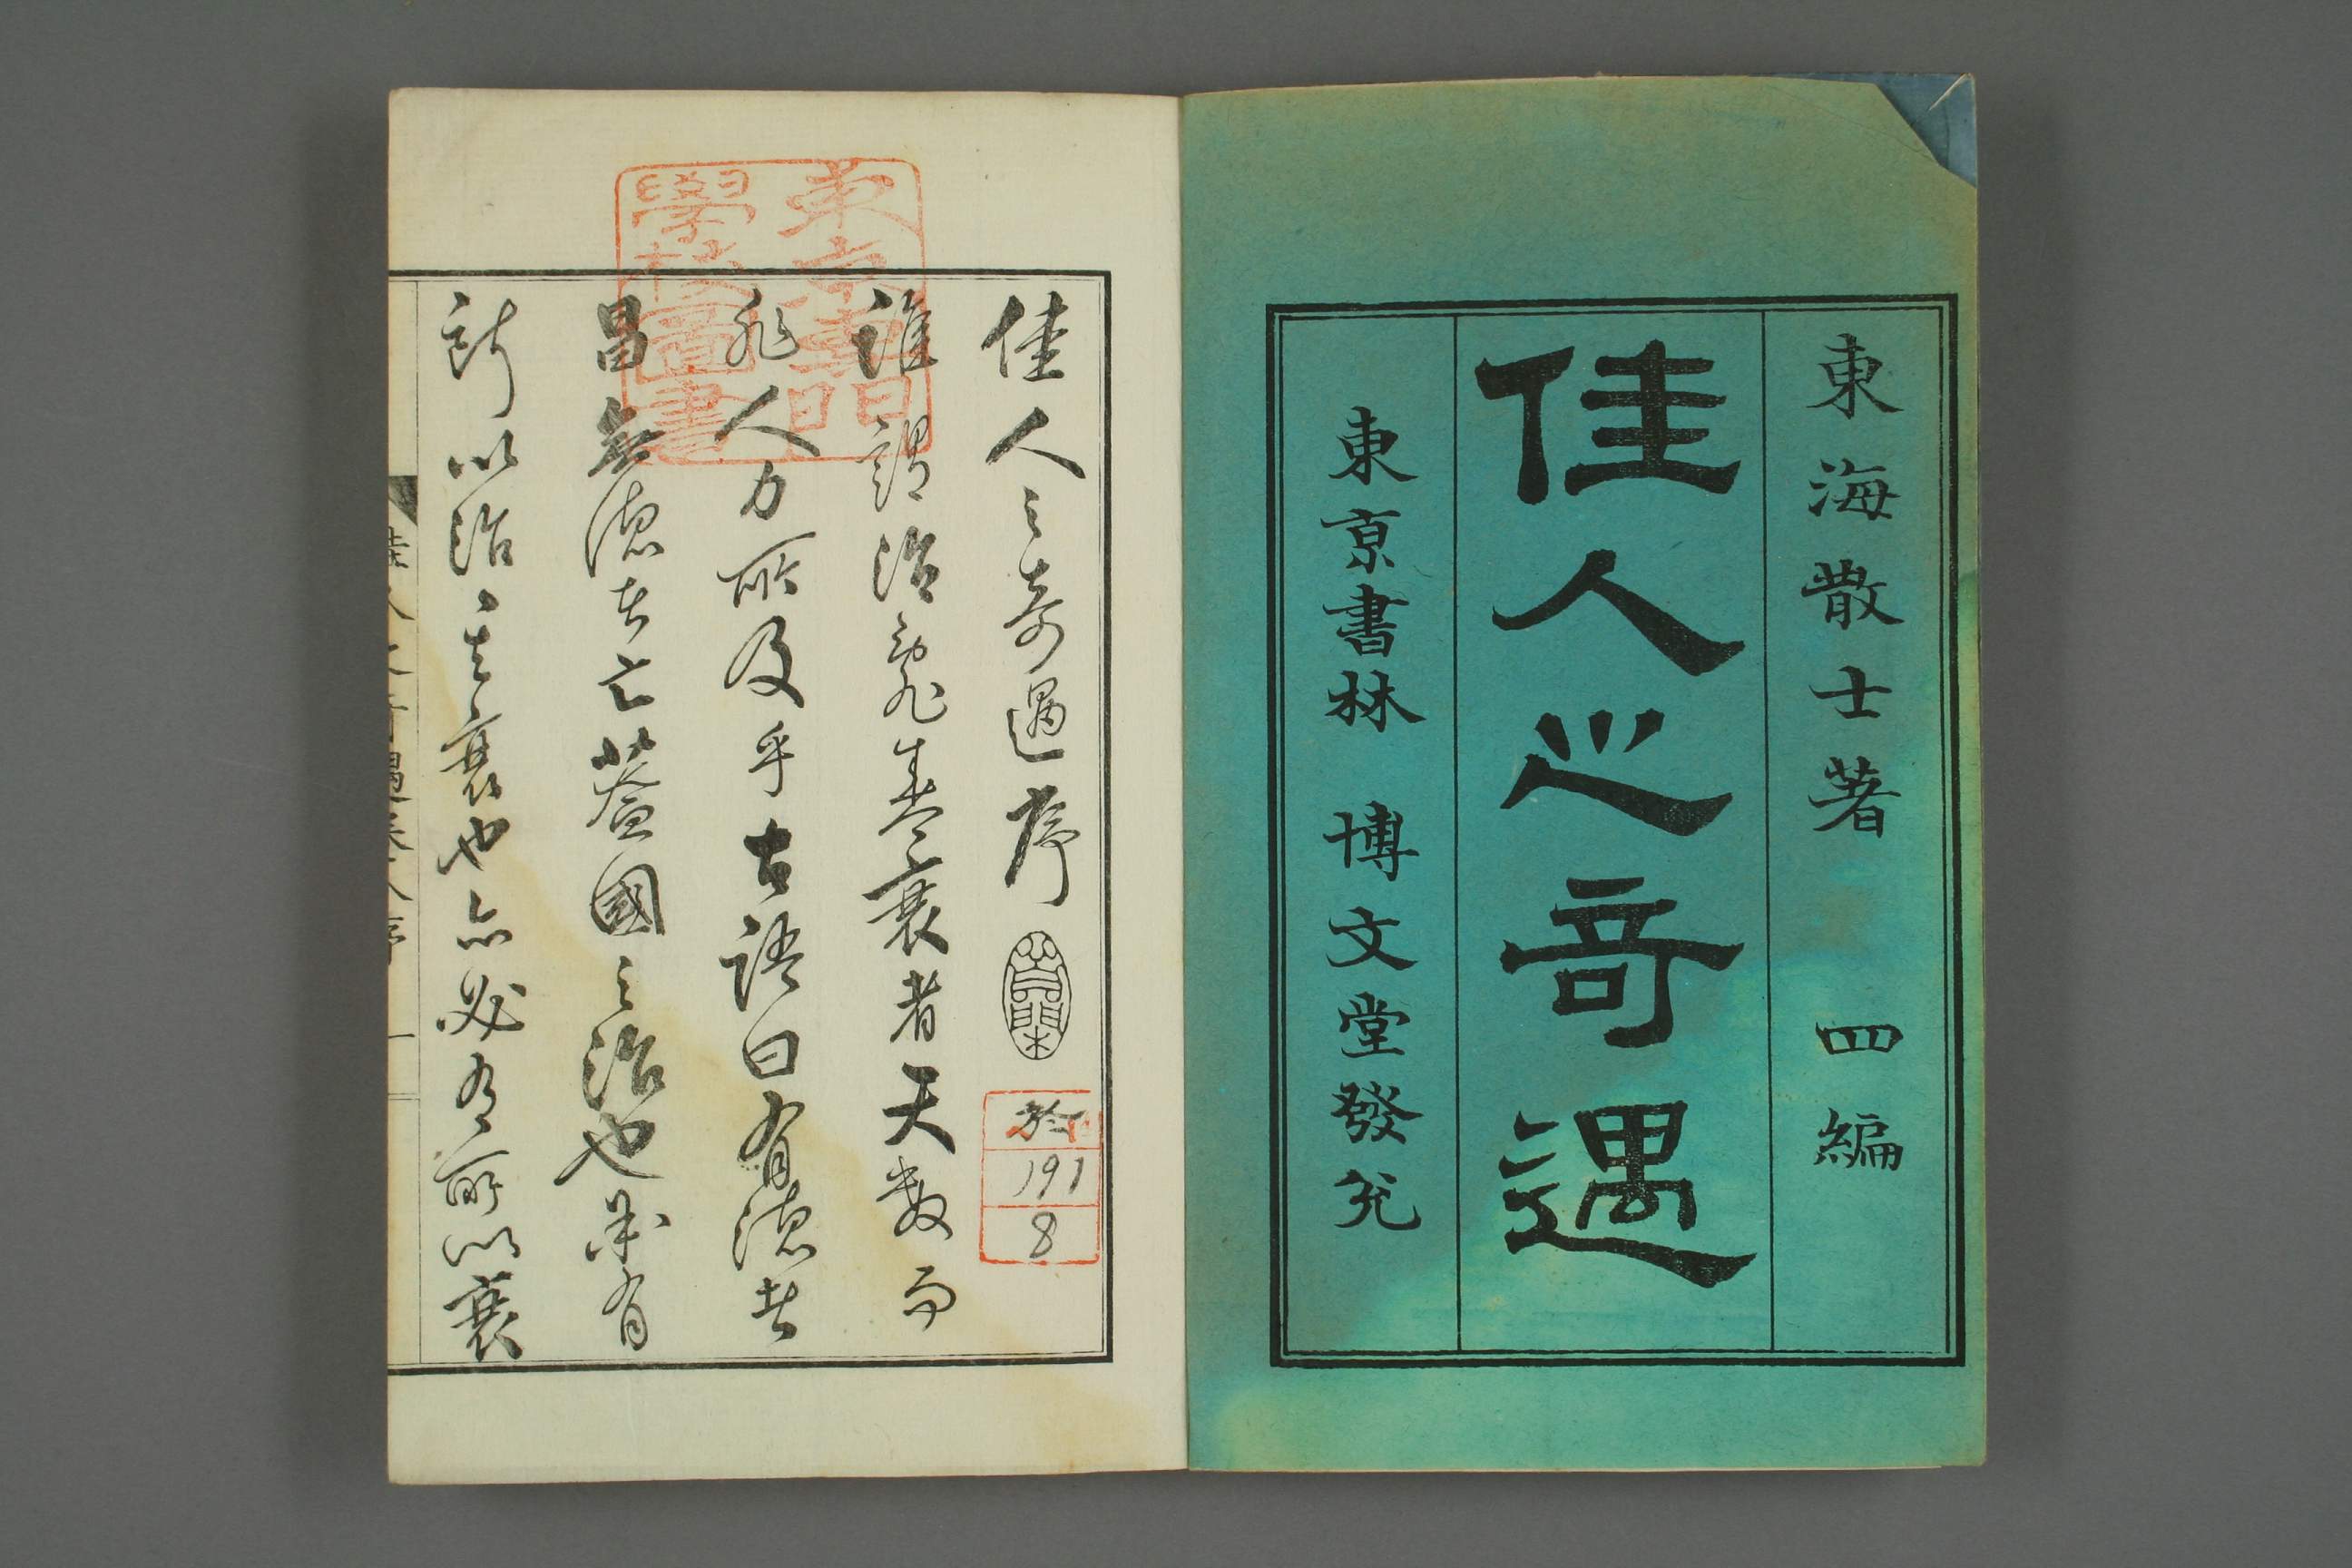 東海散士著　四編
佳人之奇遇
東京書林　博文堂發兌
東京專門
學校圖書
佳人之奇遇序
誰謂治亂盛衰者天數而
非人力所及乎古語曰有德者
昌無德者亡蓋國之治也必有
所以治之其衰也亦必有所以衰
191
8
佳人之奇遇卷八序　一